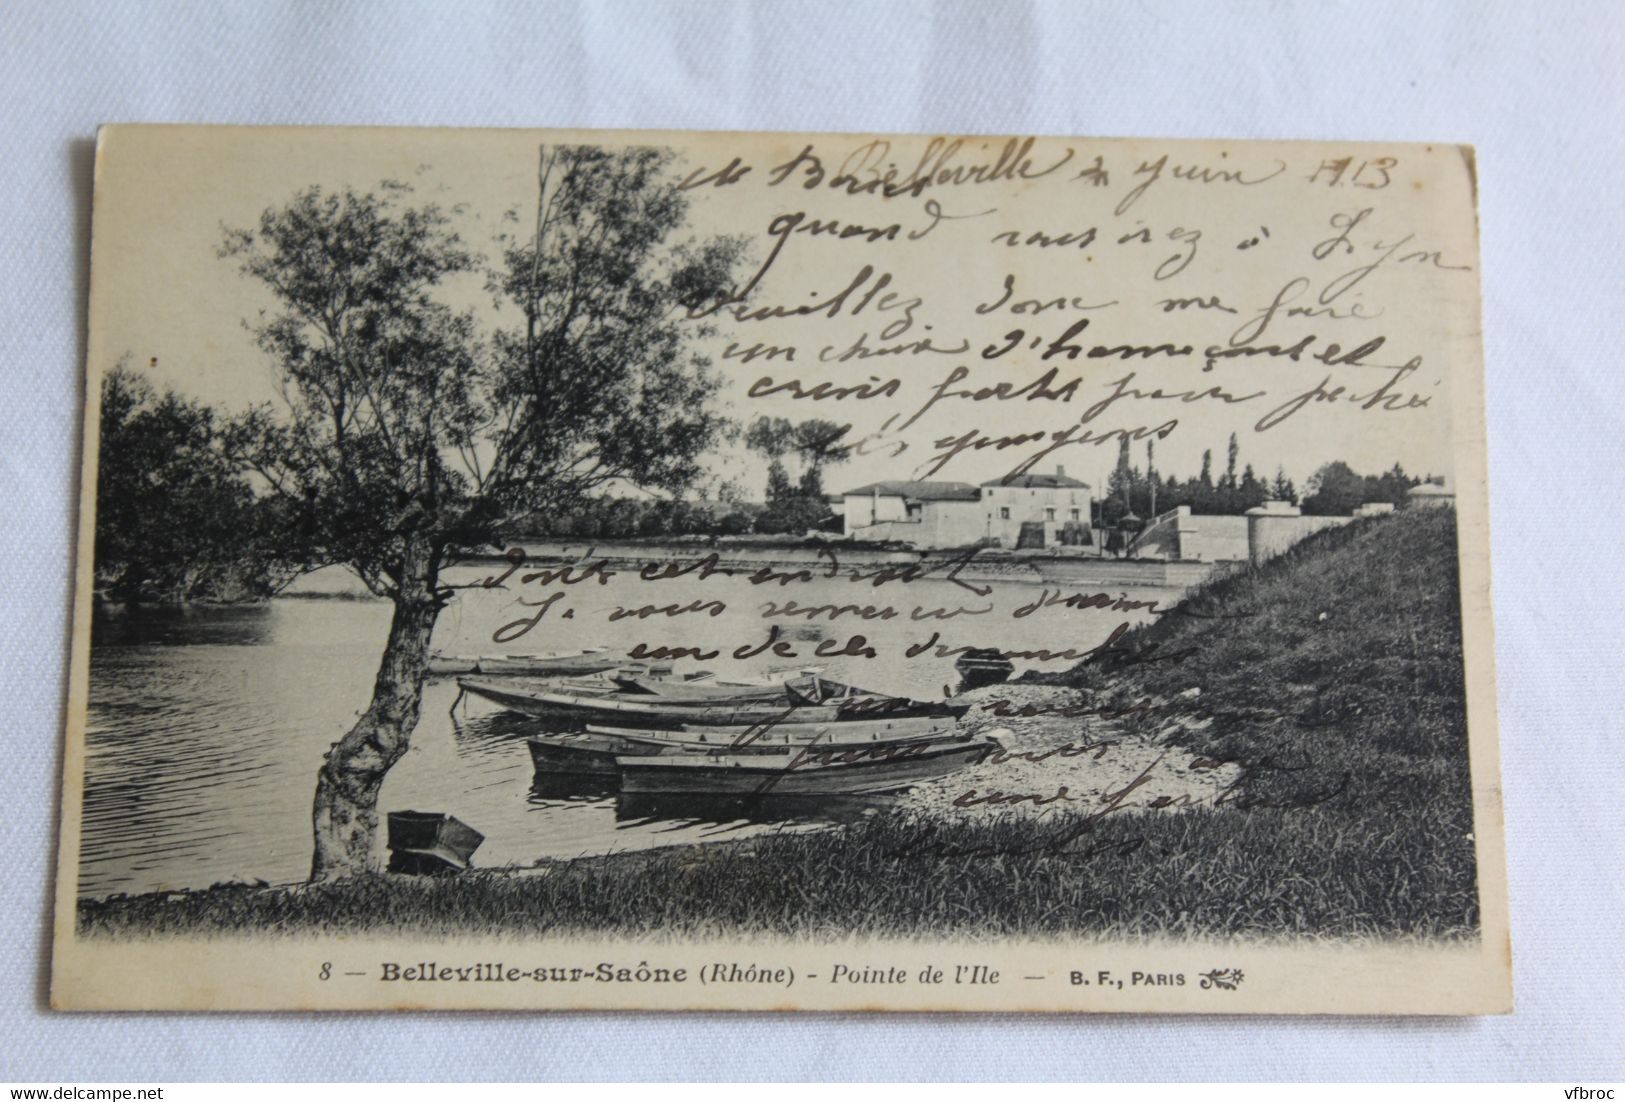 Belleville Juin 1913
quand vous irez à Lyon
Veuillez donc me faire
un choix d'hameçons et
crins forts pour pêcher
les goujons
dans cet endroit
Je vous remercie d'avance
un de ces dimanches
pour vous
une
8 — Belleville-sur-Saône (Rhône) - Pointe de l'Ile — B. F., PARIS
vfbroc